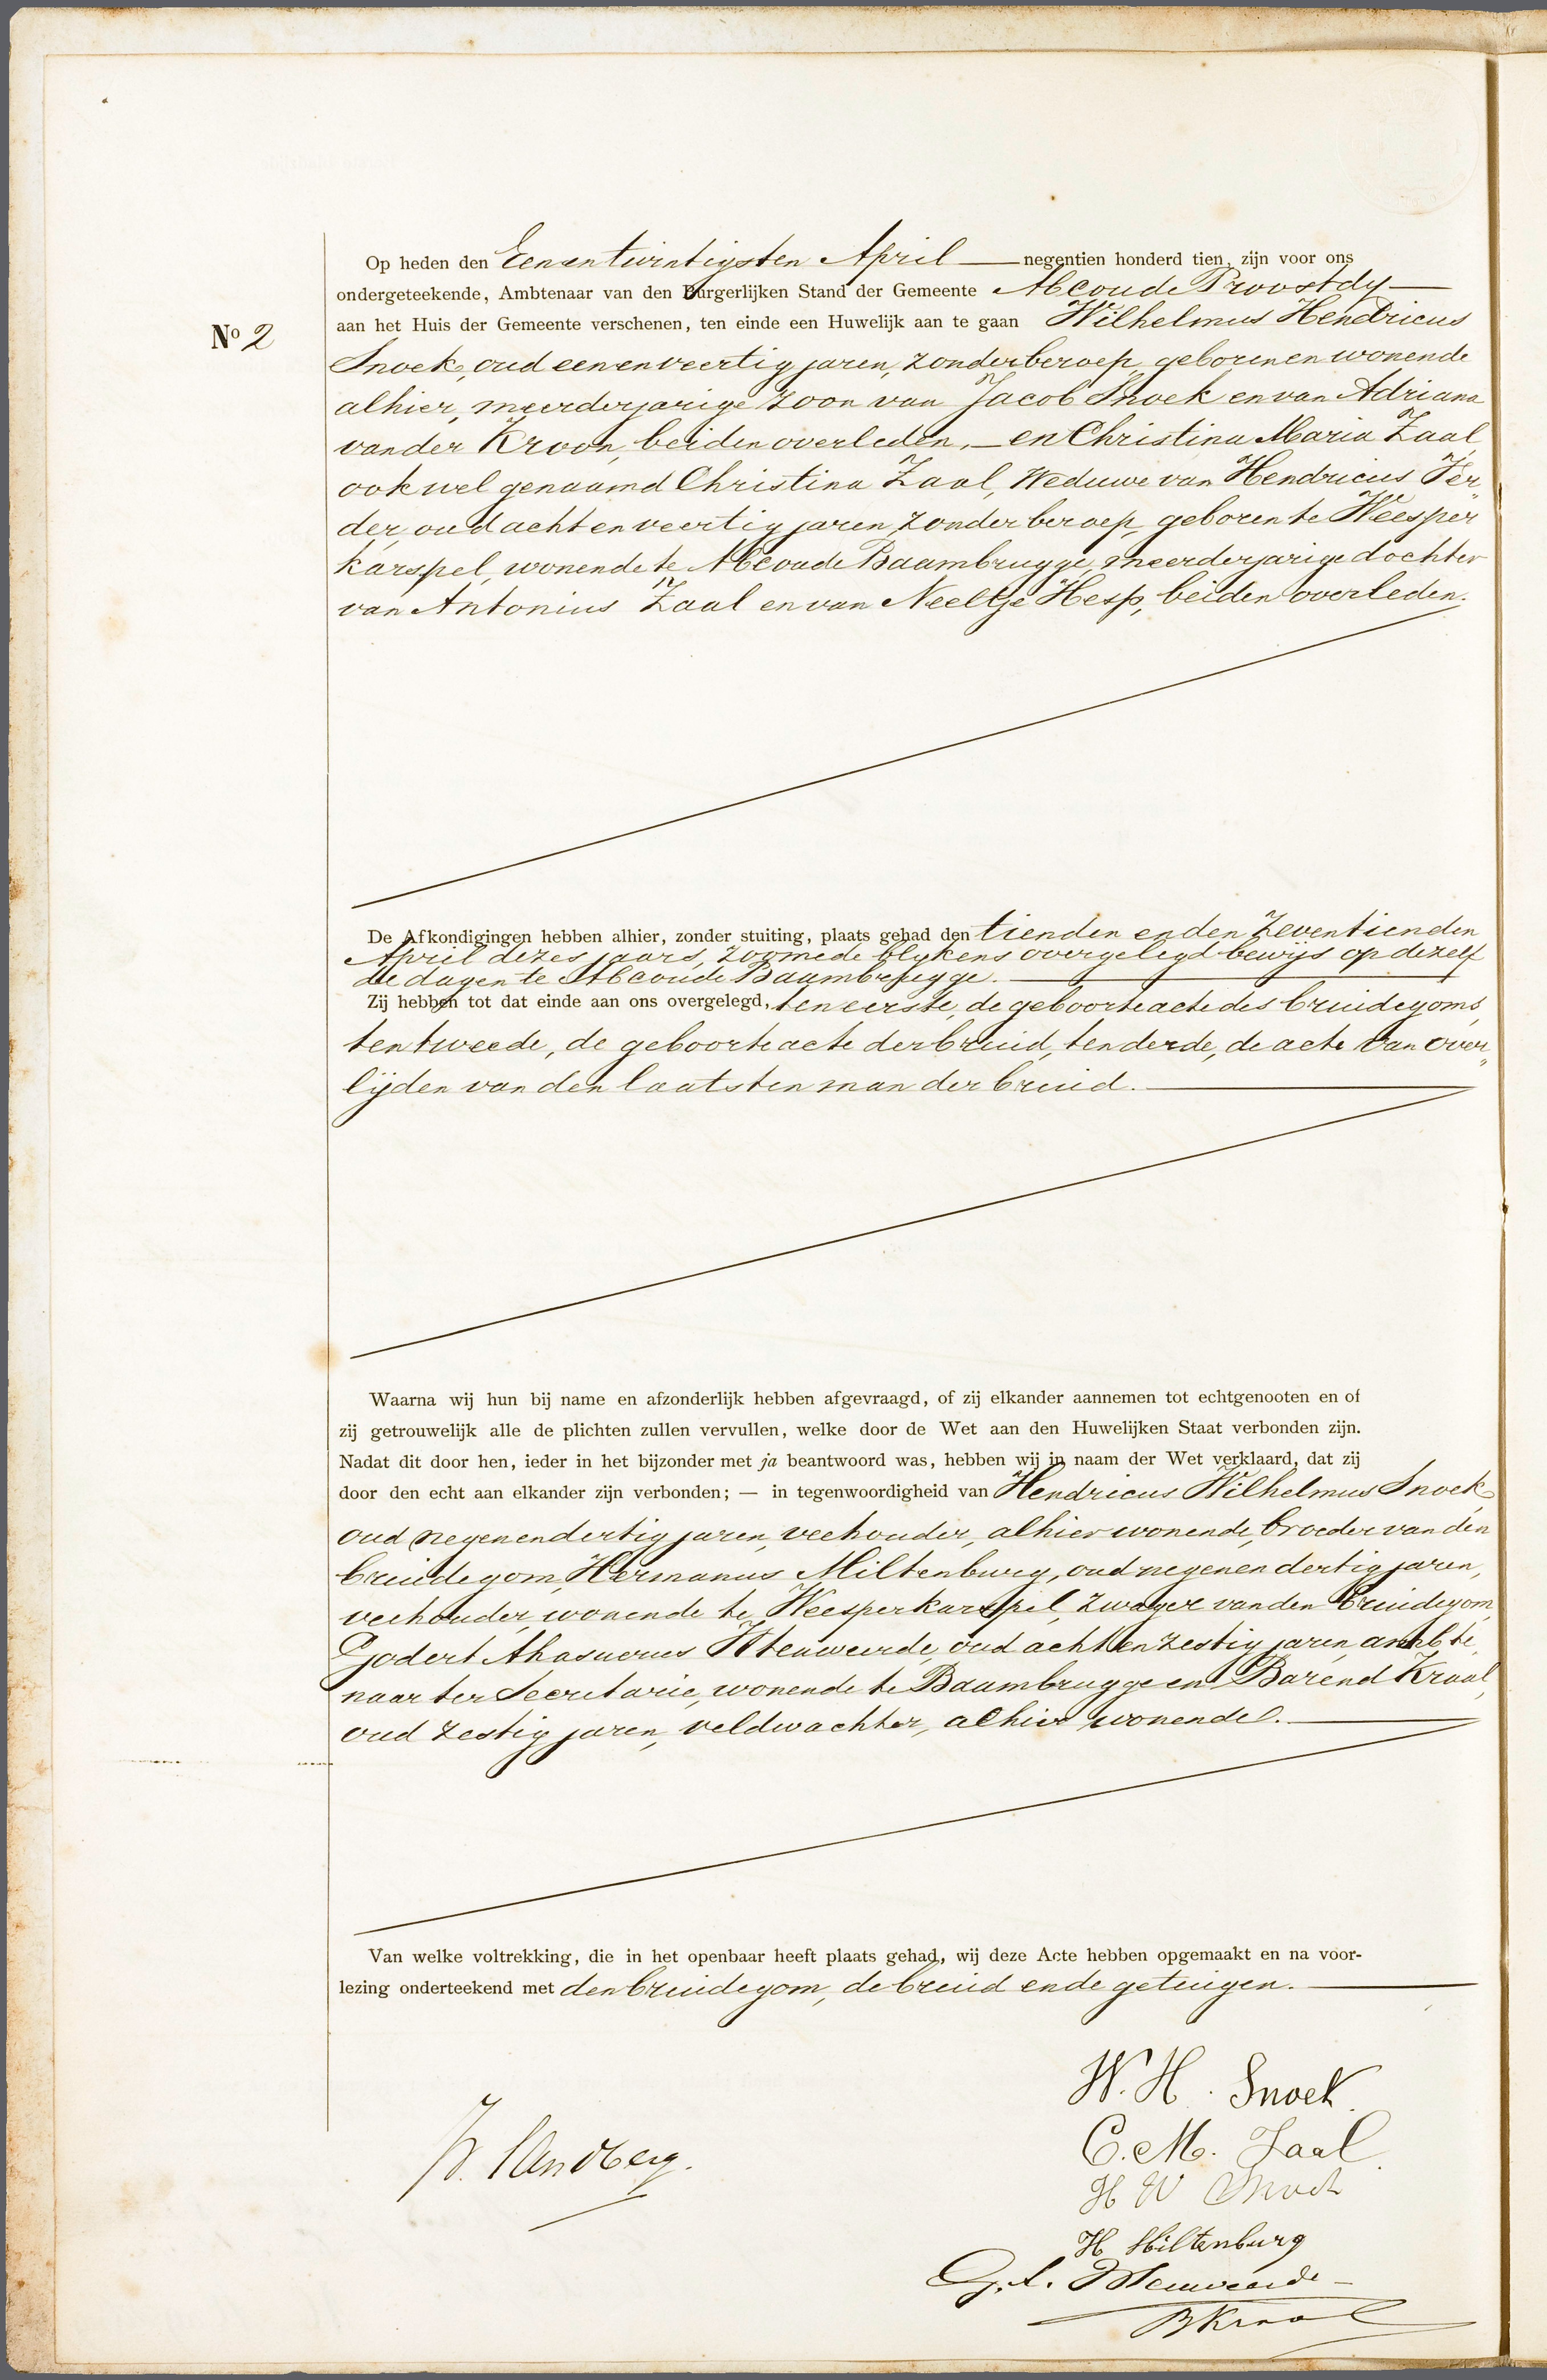 Op heden den Eenentwintigsten April — negentien honderd tien, zijn voor ons
ondergeteekende, Ambtenaar van den Burgerlijken Stand der Gemeente Abcoude Proostdy —
Nº 2
aan het Huis der Gemeente verschenen, ten einde een Huwelijk aan te gaan Wilhelmus Hendricus
Snoek, oud eenenveertig jaren, zonder beroep, geboren en wonende
alhier, meerderjarige zoon van Jacob Snoek en van Adriana
van der Kroon, beiden overleden, — en Christina Maria Zaal,
ook wel genaamd Christina Zaal, Weduwe van Hendricus Ver„
der, oud achtenveertig jaren, zonder beroep, geboren te Weesper
karspel, wonende te Abcoude Baambrugge, meerderjarige dochter
van Antonius Zaal en van Neeltje Hesp, beiden overleden.
De Afkondigingen hebben alhier, zonder stuiting, plaats gehad den tienden en den zeventienden
April dezes jaars, zoomede blykens overgelegd bewijs op dezelf
de dagen te Abcoude Baambrugge. —
Zij hebben tot dat einde aan ons overgelegd, ten eerste, de geboorteacte des bruidegoms,
ten tweede, de geboorteacte der bruid, ten derde, de acte van over„
lijden van den laatsten man der bruid. —
Waarna wij hun bij name en afzonderlijk hebben afgevraagd, of zij elkander aannemen tot echtgenooten en of
zij getrouwelijk alle de plichten zullen vervullen, welke door de Wet aan den Huwelijken Staat verbonden zijn.
Nadat dit door hen, ieder in het bijzonder met ja beantwoord was, hebben wij in naam der Wet verklaard, dat zij
door den echt aan elkander zijn verbonden; — in tegenwoordigheid van Hendricus Wilhelmus Snoek,
oud negenendertig jaren, veehouder, alhier wonende, broeder van den
bruidegom, Hermanus Miltenburg, oud negenendertig jaren,
veehouder, wonende te Weesperkarspel, zwager van den bruidegom,
Godert Ahasuerus Steuweerde, oud achtenzestig jaren, ambte„
naar ter Secretarie, wonende te Baambrugge en Barend Kraal,
oud zestig jaren, veldwachter, alhier wonende. —
Van welke voltrekking, die in het openbaar heeft plaats gehad, wij deze Acte hebben opgemaakt en na voor-
lezing onderteekend met den bruidegom, de bruid en de getuigen. —
W. H. Snoek.
C. M. Zaal.
Sandberg.
H W Snoek
H Miltenburg
G. A.
B Kraal